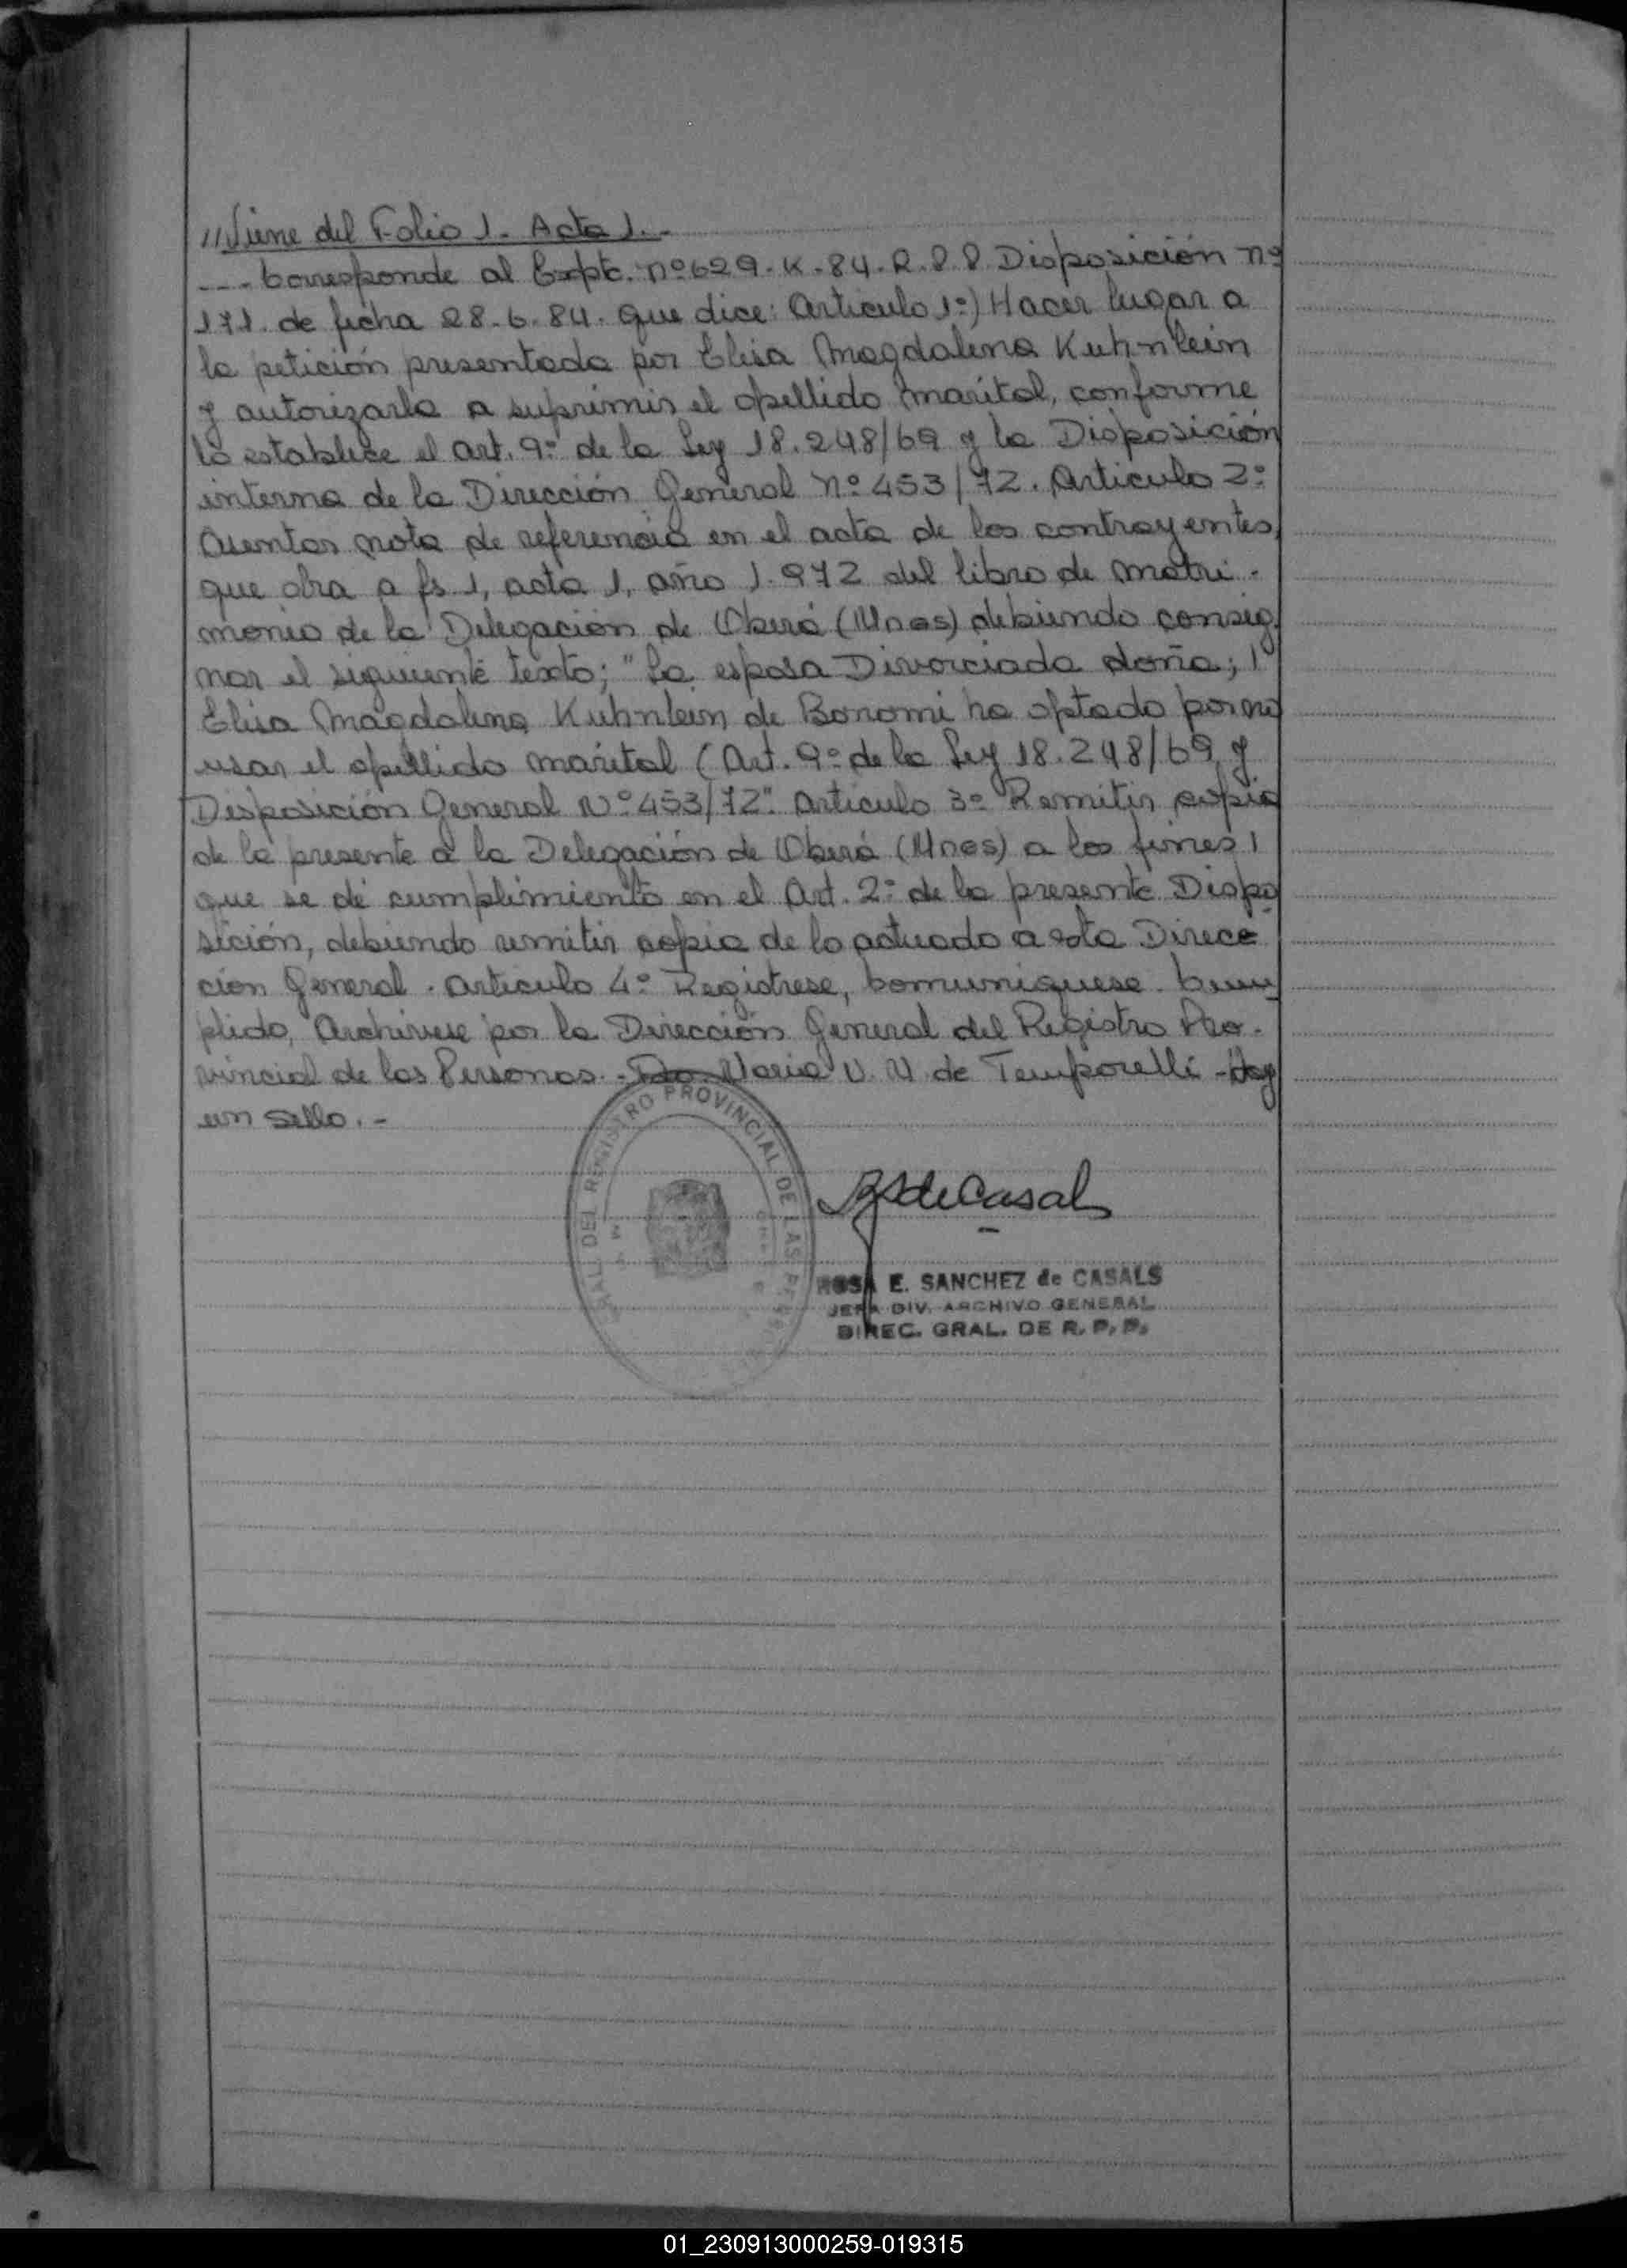 //Viene del Folio 1. Acta 1.-
---Corresponde al Expte. Nº 629-K-84-R.P.P. Disposición nº
171. de fecha 28.6.84. que dice: Articulo 1º) Hacer lugar a
la petición presentada por Elisa Magdalena Kuhnlein
y autorizarla a suprimir el apellido marital, conforme
lo establece el art. 9º de la Ley 18.248/69 y la Disposición
interna de la Dirección General Nº 453/72. Articulo 2º
Asentar nota de referencia en el acta de los contrayentes,
que obra a fs 1, acta 1, año 1.972 del libro de Matri-
monio de la Delegación de Oberá (Mnes) debiendo consig
nar el siguiente texto; "La esposa Divorciada doña;
Elisa Magdalena Kuhnlein de Bonomi ha optado por no
usar el apellido marital (Art. 9º de la Ley 18.248/69 y
Disposición General Nº 453/72". Articulo 3º Remitir copia
de la presente a la Delegación de Oberá (Mnes) a los fines
que se dé cumplimiento en el Art. 2º de la presente Dispo
sición, debiendo remitir copia de lo actuado a esta Direcc
ción General. Articulo 4º Registrese, Comuniquese. Cum
plido, Archivese por la Dirección General del Registro Pro-
vincial de las Personas.- Fdo. Maria V. V. de Temporelli - Hay
un Sello.-
DEL REGISTRO PROVINCIAL DE LAS
deCasals
ROSA E. SANCHEZ de CASALS
JEFA DIV. ARCHIVO GENERAL
DIREC. GRAL. DE R. P. P.
01_230913000259-019315